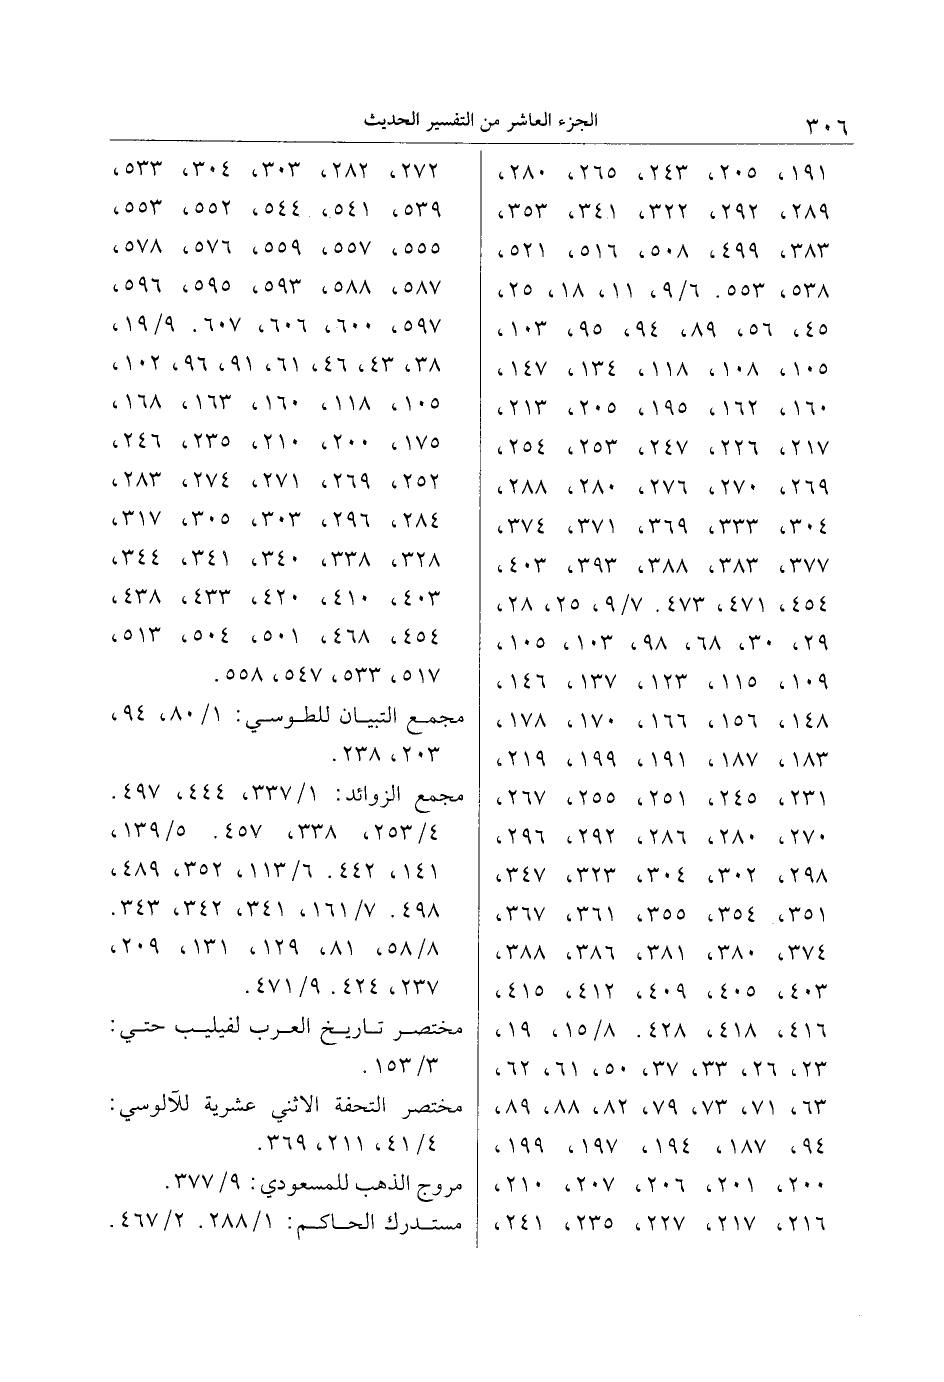 ٣٠٦
الجزء العاشر من التفسير الحديث
١٩١، ٢٠٥، ٢٤٣، ٢٦٥، ٢٨٠،
٢٨٩، ٢٩٢، ٣٢٢، ٣٤١، ٣٥٣،
٣٨٣، ٤٩٩، ٥٠٨، ٥١٦، ٥٢١،
٥٣٨، ٥٥٣. ٦/ ٩، ١١، ١٨، ٢٥،
٤٥، ٥٦، ٨٩، ٩٤، ٩٥، ١٠٣،
١٠٥، ١٠٨، ١١٨، ١٣٤، ١٤٧،
١٦٠، ١٦٢، ١٩٥، ٢٠٥، ٢١٣،
٢١٧، ٢٢٦، ٢٤٧، ٢٥٣، ٢٥٤،
٢٦٩، ٢٧٠، ٢٧٦، ٢٨٠، ٢٨٨،
٣٠٤، ٣٣٣، ٣٦٩، ٣٧١، ٣٧٤،
٣٧٧، ٣٨٣، ٣٨٨، ٣٩٣، ٤٠٣،
٤٥٤، ٤٧١، ٤٧٣. ٧/ ٩، ٢٥، ٢٨،
٢٩، ٣٠، ٦٨، ٩٨، ١٠٣، ١٠٥،
١٠٩، ١١٥، ١٢٣، ١٣٧، ١٤٦،
١٤٨، ١٥٦، ١٦٦، ١٧٠، ١٧٨،
١٨٣، ١٨٧، ١٩١، ١٩٩، ٢١٩،
٢٣١، ٢٤٥، ٢٥١، ٢٥٥، ٢٦٧،
٢٧٠، ٢٨٠، ٢٨٦، ٢٩٢، ٢٩٦،
٢٩٨، ٣٠٢، ٣٠٤، ٣٢٣، ٣٤٧،
٣٥١، ٣٥٤، ٣٥٥، ٣٦١، ٣٦٧،
٣٧٤، ٣٨٠، ٣٨١، ٣٨٦، ٣٨٨،
٤٠٣، ٤٠٥، ٤٠٩، ٤١٢، ٤١٥،
٤١٦، ٤١٨، ٤٢٨. ٨/ ١٥، ١٩،
٢٣، ٢٦، ٣٣، ٣٧، ٥٠، ٦١، ٦٢،
٦٣، ٧١، ٧٣، ٧٩، ٨٢، ٨٨، ٨٩،
٩٤، ١٨٧، ١٩٤، ١٩٧، ١٩٩،
٢٠٠، ٢٠١، ٢٠٦، ٢٠٧، ٢١٠،
٢١٦، ٢١٧، ٢٢٧، ٢٣٥، ٢٤١،
٢٧٢، ٢٨٢، ٣٠٣، ٣٠٤، ٥٣٣،
٥٣٩، ٥٤١، ٥٤٤، ٥٥٢، ٥٥٣،
٥٥٥، ٥٥٧، ٥٥٩، ٥٧٦، ٥٧٨،
٥٨٧، ٥٨٨، ٥٩٣، ٥٩٥، ٥٩٦،
٥٩٧، ٦٠٠، ٦٠٦، ٦٠٧. ٩/ ١٩،
٣٨، ٤٣، ٤٦، ٦١، ٩١، ٩٦، ١٠٢،
١٠٥، ١١٨، ١٦٠، ١٦٣، ١٦٨،
١٧٥، ٢٠٠، ٢١٠، ٢٣٥، ٢٤٦،
٢٥٢، ٢٦٩، ٢٧١، ٢٧٤، ٢٨٣،
٢٨٤، ٢٩٦، ٣٠٣، ٣٠٥، ٣١٧،
٣٢٨، ٣٣٨، ٣٤٠، ٣٤١، ٣٤٤،
٤٠٣، ٤١٠، ٤٢٠، ٤٣٣، ٤٣٨،
٤٥٤، ٤٦٨، ٥٠١، ٥٠٤، ٥١٣،
٥١٧، ٥٣٣، ٥٤٧، ٥٥٨.
مجمع التبيان للطوسي: ١/ ٨٠، ٩٤،
٢٠٣، ٢٣٨.
مجمع الزوائد: ١/ ٣٣٧، ٤٤٤، ٤٩٧.
٤/ ٢٥٣، ٣٣٨، ٤٥٧. ٥/ ١٣٩،
١٤١، ٤٤٢. ٦/ ١١٣، ٣٥٢، ٤٨٩،
٤٩٨. ٧/ ١٦١، ٣٤١، ٣٤٢، ٣٤٣.
٨/ ٥٨، ٨١، ١٢٩، ١٣١، ٢٠٩،
٢٣٧، ٤٢٤. ٩/ ٤٧١.
مختصر تاريخ العرب لفيليب حتي:
٣/ ١٥٣.
مختصر التحفة الاثني عشرية للآلوسي:
٤/ ٤١، ٢١١، ٣٦٩.
مروج الذهب للمسعودي: ٩/ ٣٧٧.
مستدرك الحاكم: ١/ ٢٨٨. ٢/ ٤٦٧.